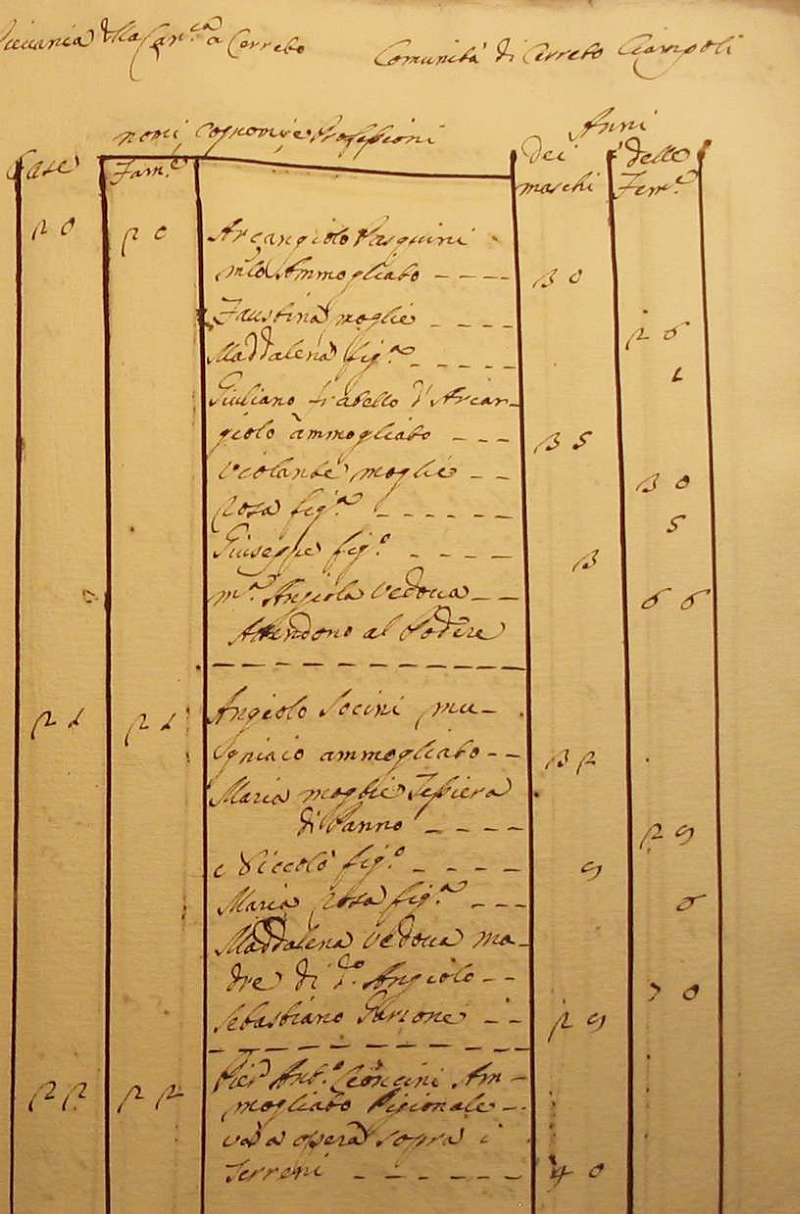 della Canca a Cerreto Comunità di Cerreto Ciampoli
nomi, cognomi, e Professioni Anni
Case Fame dei delle
maschi Feme
20 20 Arcangiolo Pasquini
mlo Ammogliato ---- 30
Faustina moglie ---- 26
Maddalena figa ----- 1
Giuliano fratello d'Arcan-
giolo ammogliato --- 35
Violante moglie -- 30
Rosa figa ------ 5
Giuseppe figo ---- 3
Ma Angiola Vedova -- 66
Attendono al Podere
21 21 Angiolo Socini mu-
gniaio ammogliato -- 32
Maria moglie Tessiera
di Panno ---- 29
Niccolò figo ---- 9
Maria Rosa figa --- 6
Maddalena Vedova ma-
dre di do Angiolo -- 70
Sebastiano Garzone -- 29
22 22 Pier Anto Leoncini Am-
mogliato Pigionale --
và a opera sopra i
Terreni ------ 40